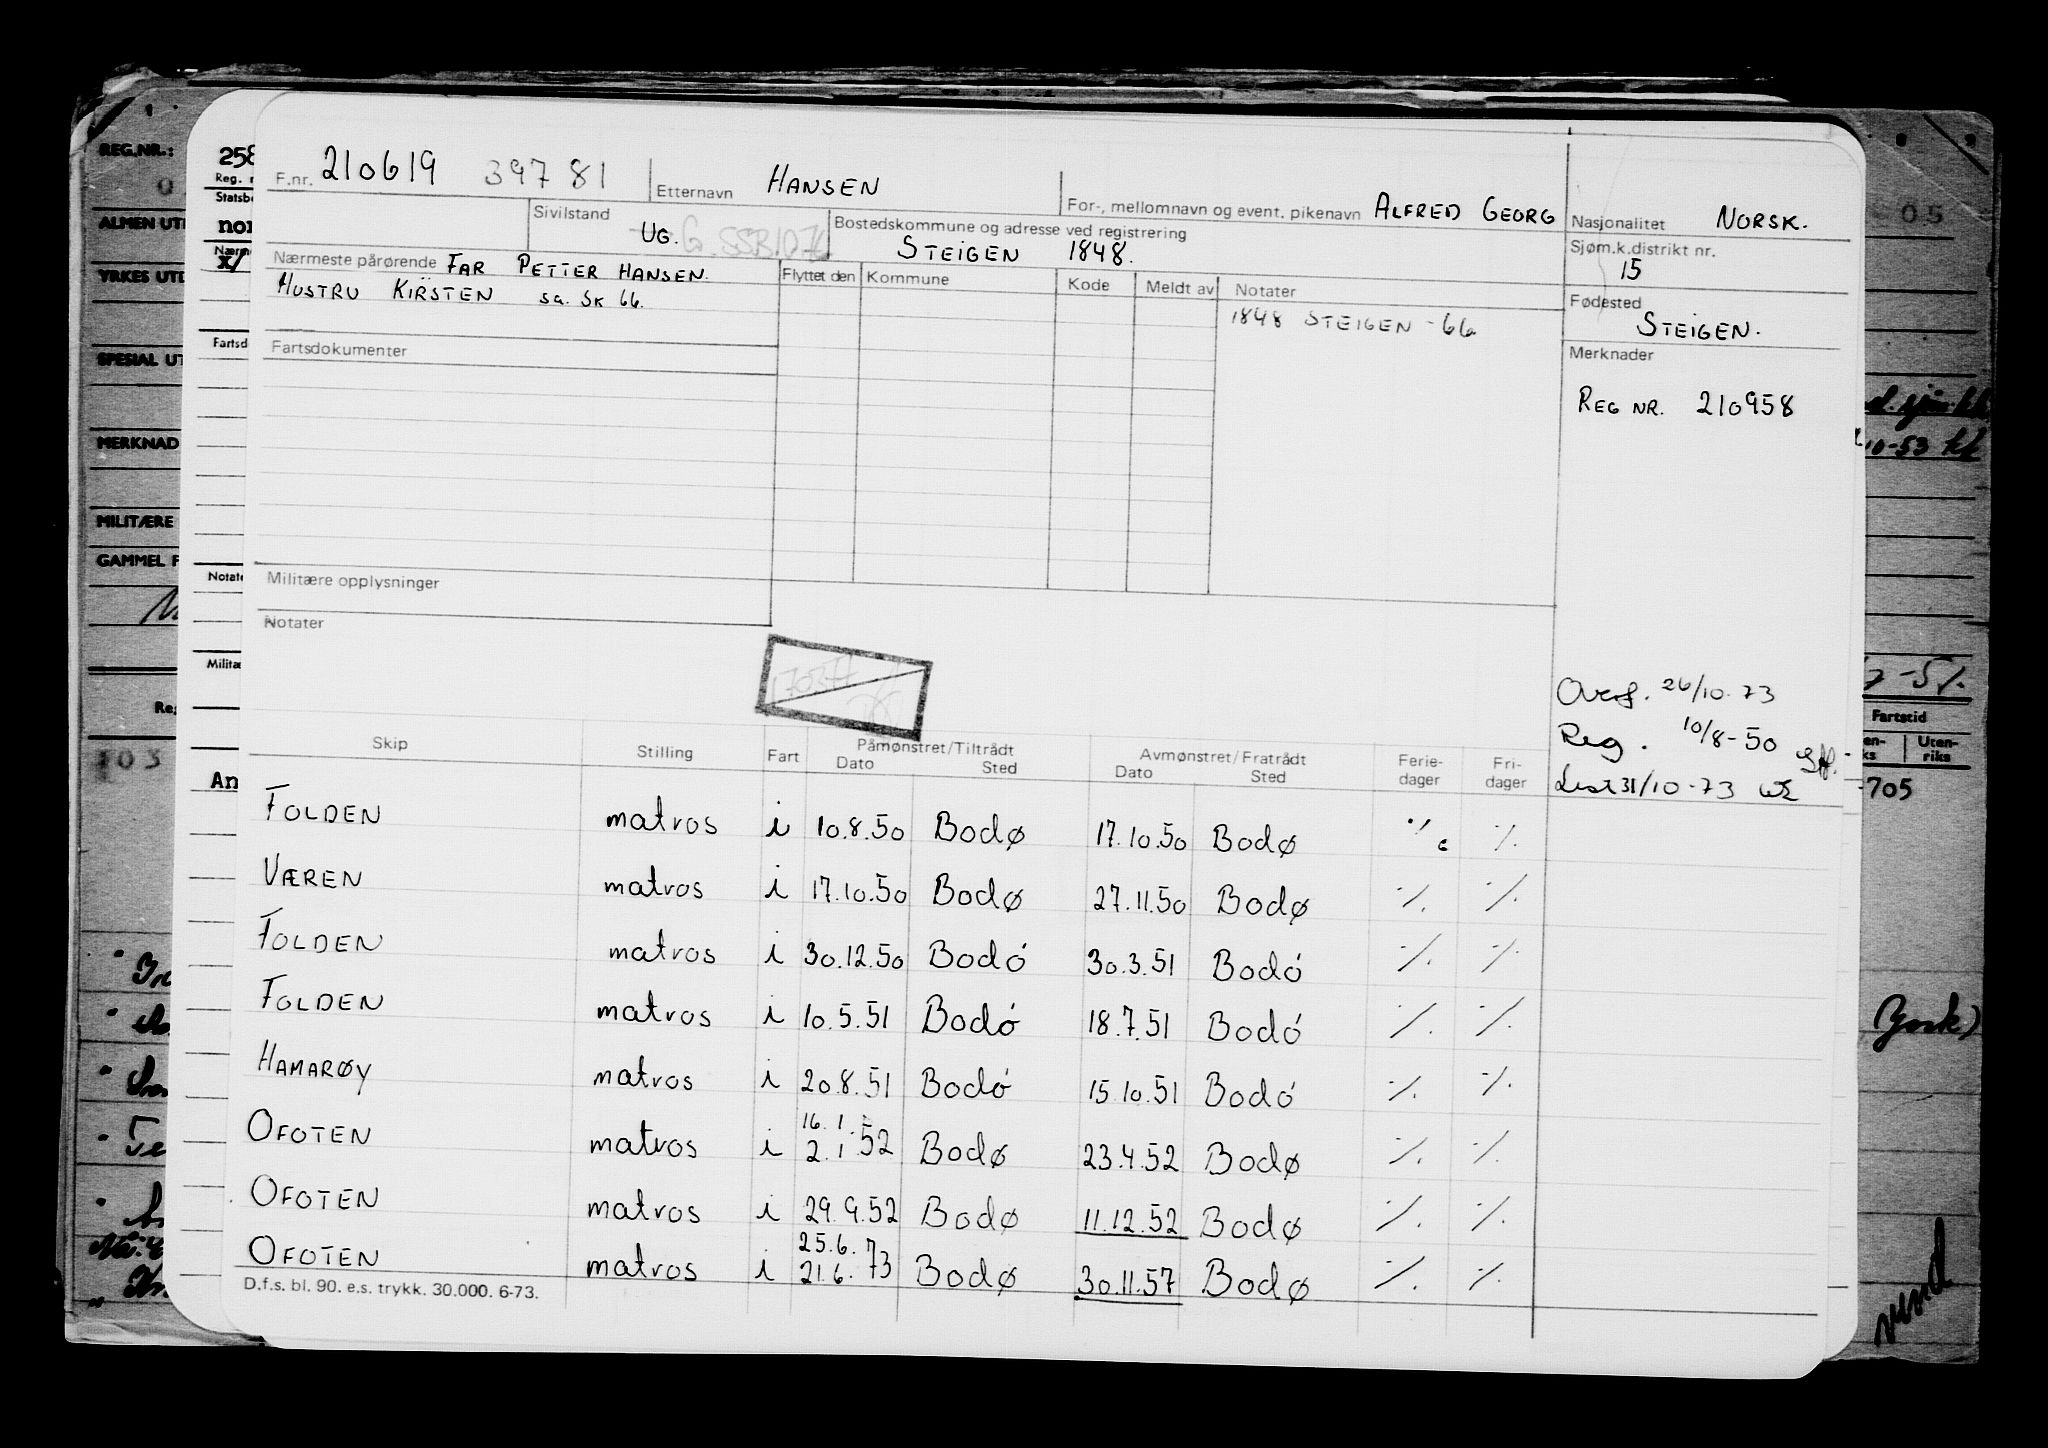 REG.NR.:
ALMEN UT
YRKES UTD
SPESIAL UT
MERKNAD
MILITÆRE
GAMMEL F
258
Reg. n
Statsb
nor
Nærm
x/
Fartsd
Notate
Militæ
Re
103
An
F.nr. 210619 39781 Etternavn HANSEN For-, mellomnavn og event. pikenavn ALFRED GEORG
Nasjonalitet NORSK.
Sivilstand UG. G. SSB.1076
Bostedskommune og adresse ved registrering
STEIGEN 1848.
Sjøm.k.distrikt nr.
15
Nærmeste pårørende FAR PETTER HANSEN.
HUSTRU KIRSTEN sa. SK 66.
Flyttet den Kommune Kode Meldt av Notater
1848 STEIGEN - 66
Fødested
STEIGEN.
Fartsdokumenter
Merknader
REG NR. 210958
Militære opplysninger
Notater
Overf. 26/10-73
Reg. 10/8-50
Lest 31/10-73
Skip Stilling Fart Påmønstret/Tiltrådt Avmønstret/Fratrådt Ferie-dager Fri-dager
Dato Sted Dato Sted
FOLDEN matros i 10.8.50 Bodø 17.10.50 Bodø ٪ ٪
VÆREN matros i 17.10.50 Bodø 27.11.50 Bodø ٪ ٪
FOLDEN matros i 30.12.50 Bodó 30.3.51 Bodó ٪ ٪
FOLDEN matros i 10.5.51 Bodó 18.7.51 Bodó ٪ ٪
HAMARØY matros i 20.8.51 Bodó 15.10.51 Bodó ٪ ٪
16.1.
OFOTEN matros i 2.1.52 Bodø 23.4.52 Bodø ٪ ٪
OFOTEN matros i 29.9.52 Bodø 11.12.52 Bodø ٪ ٪
25.6.
OFOTEN matros i 21.6.73 Bodø 30.11.57 Bodø ٪ ٪
D.f.s. bl. 90. e.s. trykk. 30.000. 6-73.
05
10-53
Fartstid
Uten-riks
-705